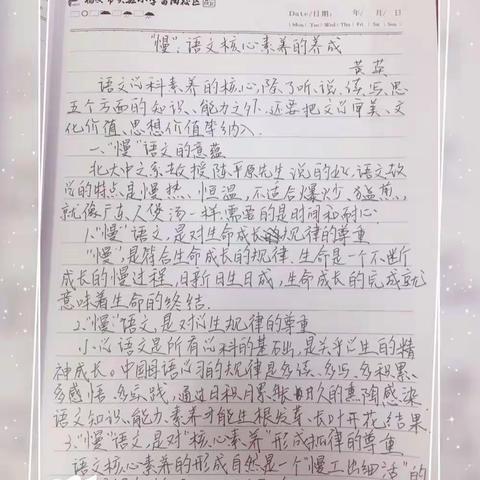 Date/日期: 年/ 月/ 日
Mon Tue Wed Thu Fri Sat Sun
"慢":语文核心素养的养成
黄英
语文学科素养的核心,除了听、说、读、写、思
五个方面的知识、能力之外,还要把文学审美、文
化价值、思想价值等纳入.
一、"慢"语文的意蕴
北大中文系教授陈平原先生说的好,语文教
学的特点是慢热、恒温,不适合爆炒、猛煎,
就像广东人煲汤一样,需要的是时间和耐心.
1."慢"语文,是对生命成长规律的尊重
"慢",是符合生命成长的规律.生命是一个不断
成长的慢过程,日新日生日成,生命成长的完成就
意味着生命的终结.
2."慢"语文,是对学生规律的尊重
小学语文是所有学科的基础,是关乎学生的精
神成长。中国母语学习的规律是多读、多写、多积累、
多感悟、多实践,通过日积月累、长久的熏陶感染
语文知识、能力、素养才能生根发芽、长叶开花、结果.
3."慢"语文,是对"核心素养"形成规律的尊重
语文核心素养的形成自然是一个"慢工出细活"的